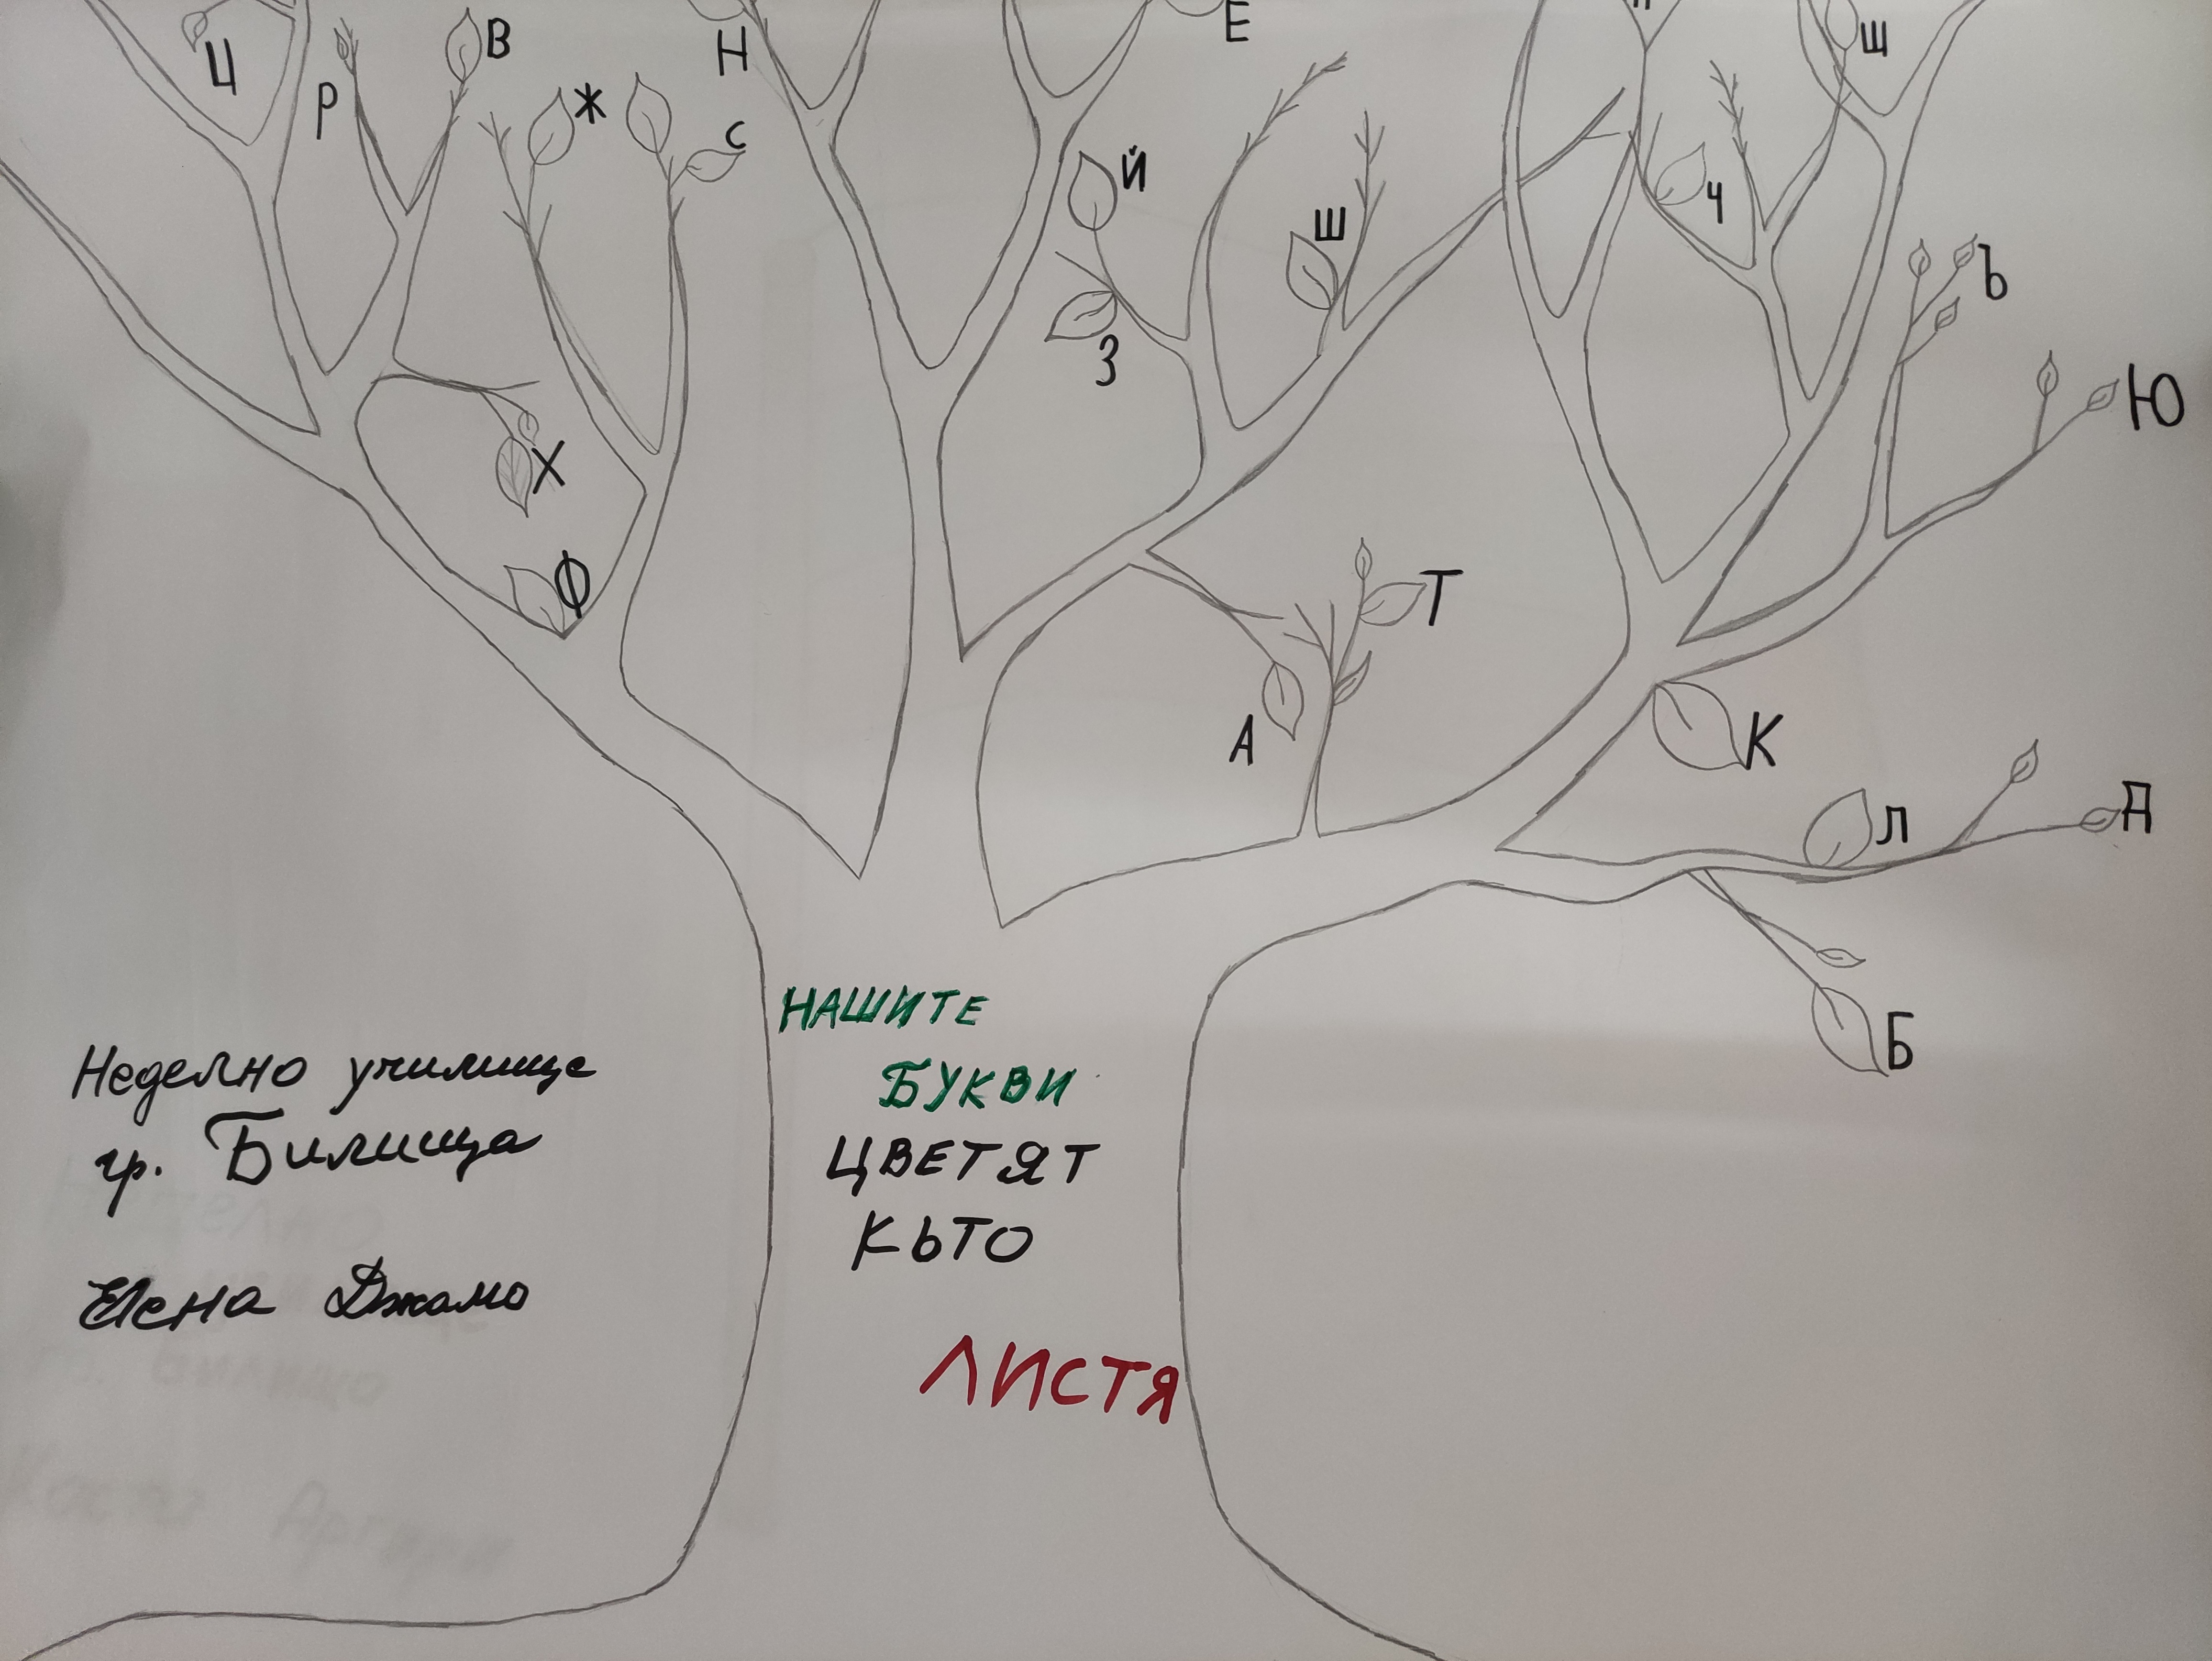 Ц
Р
В
Ж
С
Н
Е
Й
З
Ш
Ч
Щ
Ъ
Ю
Х
Ф
А
Т
К
Л
Д
Б
НАШИТЕ
БУКВИ
ЦВЕТЯТ
КЬТО
ЛИСТЯ
Неделно училище
гр. Билища
Елена Джамо